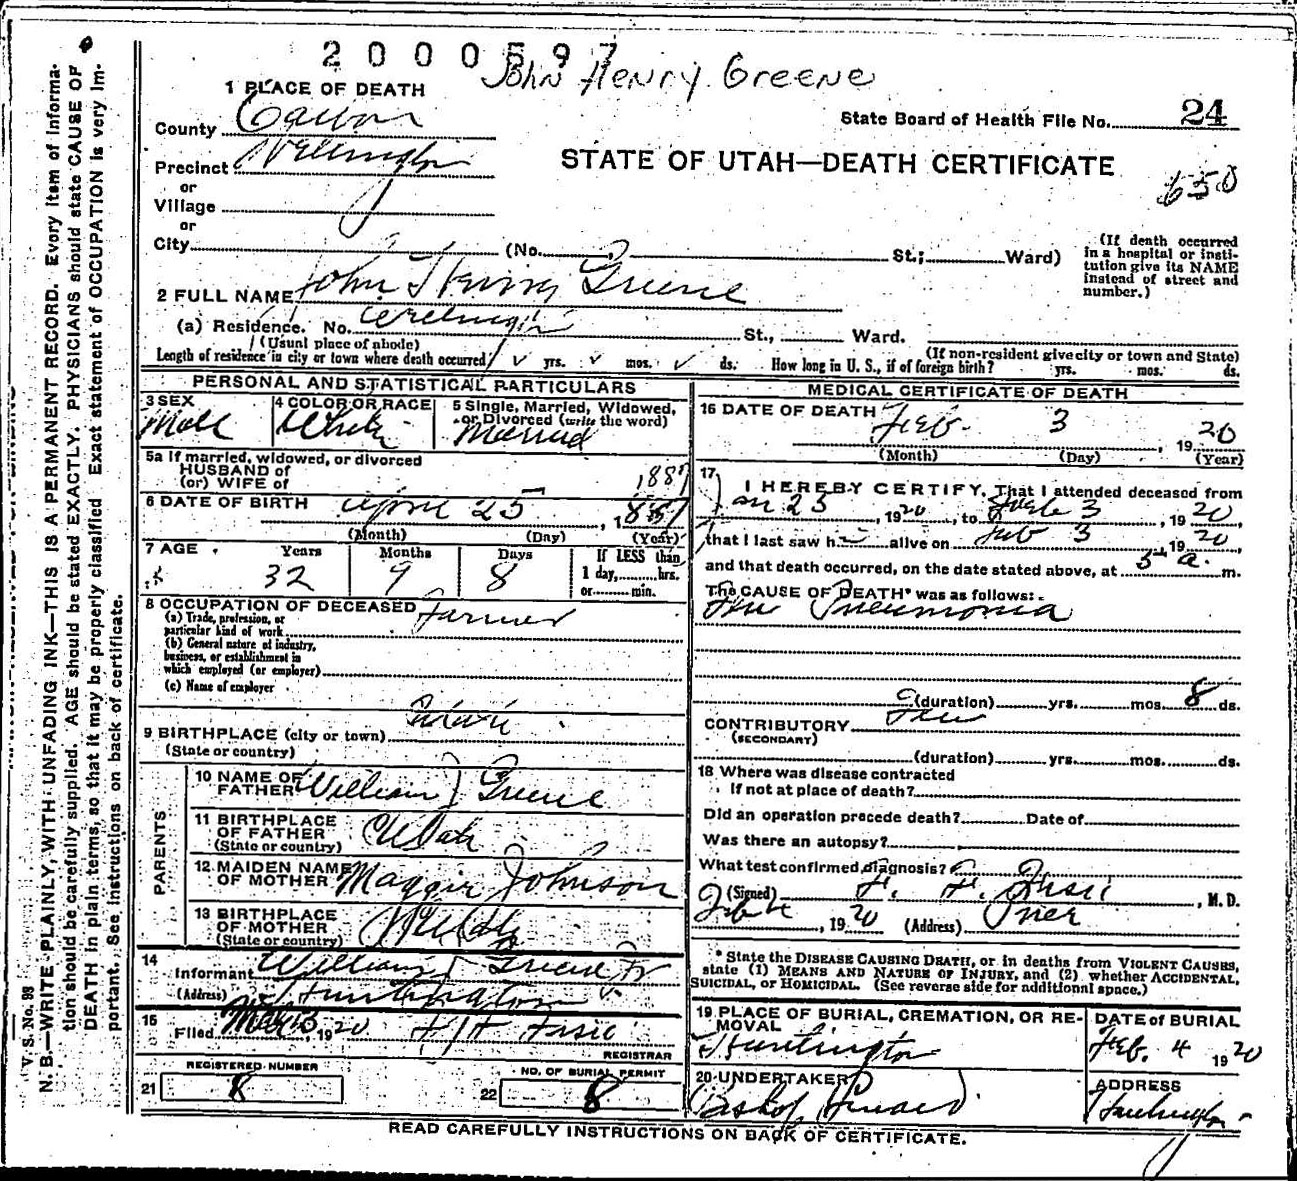 2 0 0 0 5 9 7
John Henry Greene
1 PLACE OF DEATH
County Carbon
State Board of Health File No. 24
Precinct Wellington
STATE OF UTAH—DEATH CERTIFICATE
650
or
Village
or
City (No. St.; Ward)
(If death occurred in a hospital or institution give its NAME instead of street and number.)
2 FULL NAME John Henry Greene
(a) Residence. No. Wellington St., Ward.
(Usual place of abode) (If non-resident give city or town and State)
Length of residence in city or town where death occurred yrs. mos. ds. How long in U. S., if of foreign birth? yrs. mos. ds.
PERSONAL AND STATISTICAL PARTICULARS
3 SEX Male
4 COLOR OR RACE White
5 Single, Married, Widowed, or Divorced (write the word) Married
5a If married, widowed, or divorced
HUSBAND of
(or) WIFE of
1887
6 DATE OF BIRTH April 25, 1887
(Month) (Day) (Year)
7 AGE Years Months Days If LESS than
32 9 8 1 day, hrs.
or min.
8 OCCUPATION OF DECEASED Farmer
(a) Trade, profession, or
particular kind of work
(b) General nature of industry,
business, or establishment in
which employed (or employer)
(c) Name of employer
9 BIRTHPLACE (city or town)
(State or country)
PARENTS
10 NAME OF FATHER William J Greene
11 BIRTHPLACE OF FATHER (State or country) Utah
12 MAIDEN NAME OF MOTHER Maggie Johnson
13 BIRTHPLACE OF MOTHER (State or country)
14 Informant William J Greene Jr
(Address) Huntington
15 Filed 1920
REGISTRAR
REGISTERED NUMBER
21 8
NO. OF BURIAL PERMIT
22 8
MEDICAL CERTIFICATE OF DEATH
16 DATE OF DEATH Feb. 3, 1920
(Month) (Day) (Year)
17 I HEREBY CERTIFY, That I attended deceased from
Jan 25, 1920, to Feb 3, 1920,
that I last saw h alive on Feb 3, 1920,
and that death occurred, on the date stated above, at 5 a. m.
The CAUSE OF DEATH* was as follows:
Flu Pneumonia
(duration) yrs. mos. 8 ds.
CONTRIBUTORY Flu
(SECONDARY)
(duration) yrs. mos. ds.
18 Where was disease contracted
If not at place of death?
Did an operation precede death? Date of
Was there an autopsy?
What test confirmed diagnosis?
(Signed) , M.D.
Feb 4, 1920 (Address) Price
* State the DISEASE CAUSING DEATH, or in deaths from VIOLENT CAUSES,
state (1) MEANS AND NATURE OF INJURY, and (2) whether ACCIDENTAL,
SUICIDAL, or HOMICIDAL. (See reverse side for additional space.)
19 PLACE OF BURIAL, CREMATION, OR REMOVAL
Huntington
DATE of BURIAL
Feb. 4 1920
20 UNDERTAKER
Bishop
ADDRESS
Huntington
READ CAREFULLY INSTRUCTIONS ON BACK OF CERTIFICATE.
V. S. No. 98
N. B.—WRITE PLAINLY, WITH UNFADING INK—THIS IS A PERMANENT RECORD. Every item of information should be carefully supplied. AGE should be stated EXACTLY. PHYSICIANS should state CAUSE OF DEATH in plain terms, so that it may be properly classified. Exact statement of OCCUPATION is very important. See instructions on back of certificate.